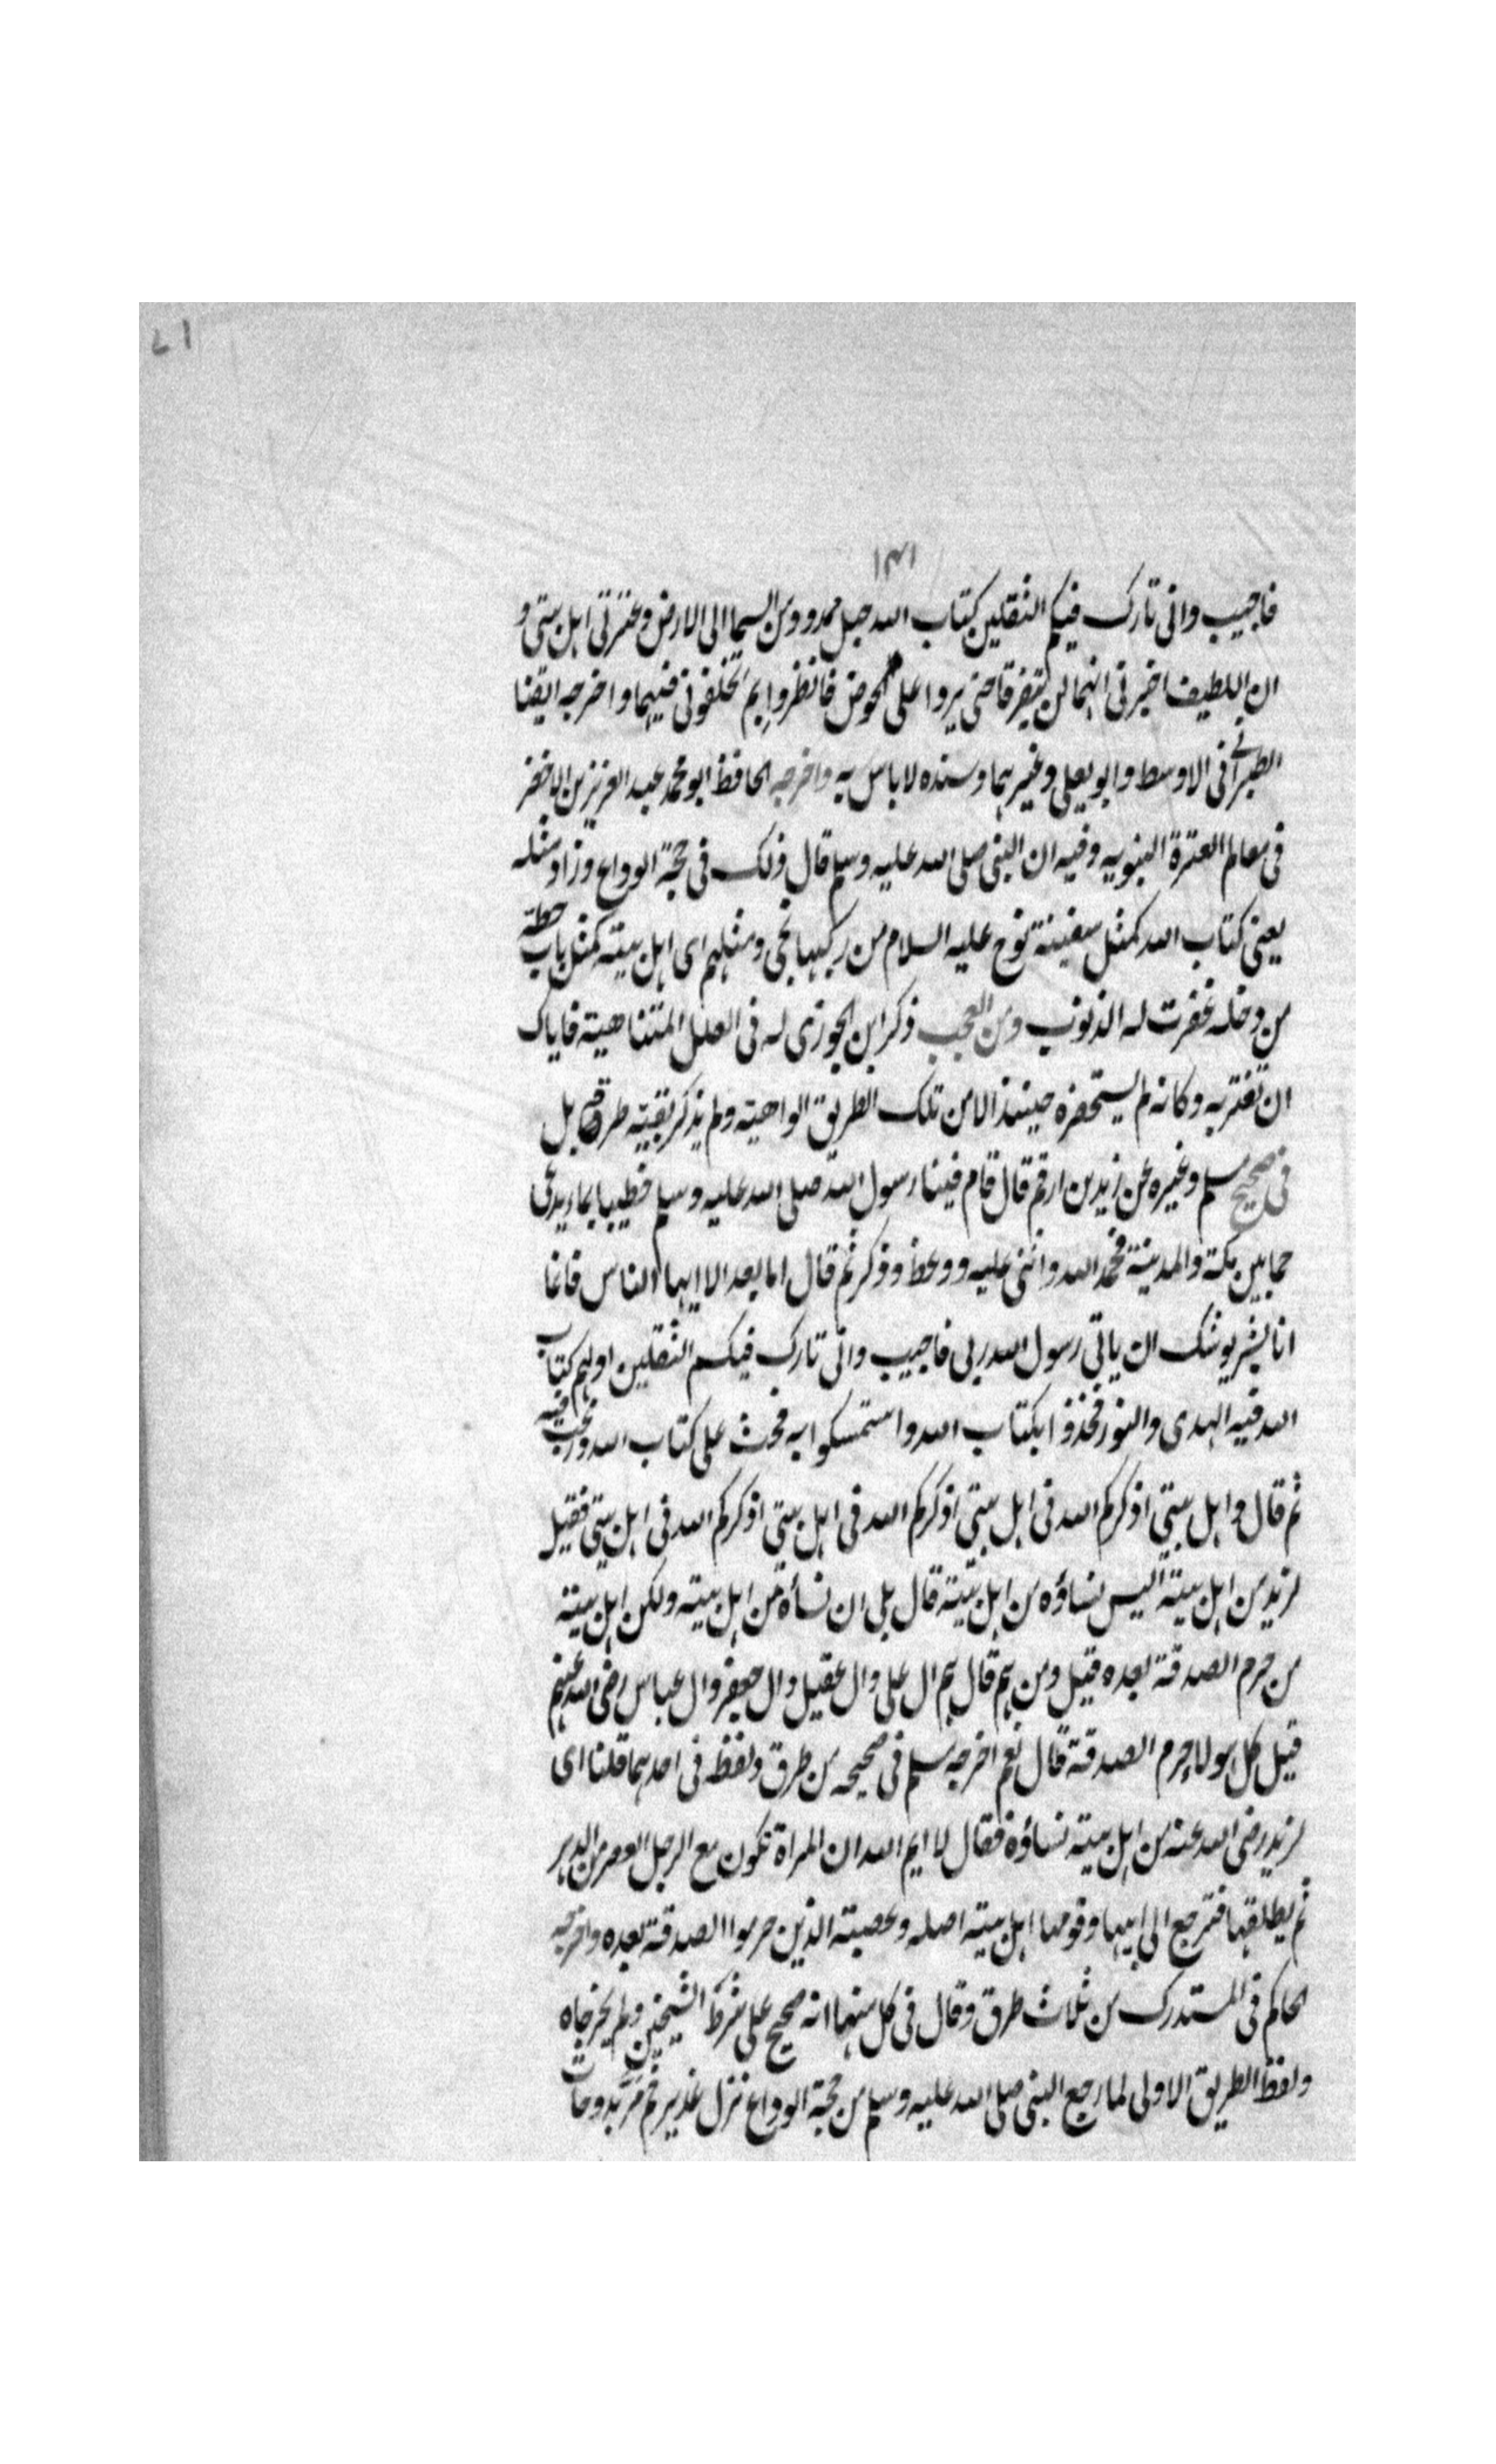 ١٧
١٣١
فاجيب وانى تارك فيكم الثقلين كتاب الله حبل ممدود من السما الى الارض وعترتى اهل بيتى و
ان اللطيف اخبرنى انهما لن يتفرقا حتى يردا على الحوض فانظروا بم تخلفونى فيهما واخرجه ايضا
الطبرانى فى الاوسط وابو يعلى وغيرهما وسنده لا باس به واخرجه الحافظ ابو محمد عبد العزيز بن الاخضر
فى معالم العترة النبويه وفيه ان النبى صلى الله عليه وسلم قال ذلك فى حجة الوداع وزاد مثله
يعنى كتاب الله كمثل سفينة نوح عليه السلام من ركبها نجى ومثلهم اى اهل بيته كمثل باب حطة
من دخله غفرت له الذنوب ومن العجب ذكر ابن الجوزى له فى العلل المتناهية فاياك
ان تغتر به وكانه لم يستحضره حينئذ الا من تلك الطريق الواهية ولم يذكر بقية طرقه بل
فى صحيح مسلم وغيره عن زيد بن ارقم قال قام فينا رسول الله صلى الله عليه وسلم خطيبا بماء يدعى
خما بين مكة والمدينة فحمد الله واثنى عليه ووعظ وذكر ثم قال اما بعد الا ايها الناس فانما
انا بشر يوشك ان ياتى رسول الله ربى فاجيب وانى تارك فيكم الثقلين اولهم كتاب
الله فيه الهدى والنور فخذوا بكتاب الله واستمسكوا به فحث على كتاب الله ورغب فيه
ثم قال واهل بيتى اذكركم الله فى اهل بيتى اذكركم الله فى اهل بيتى اذكركم الله فى اهل بيتى فقيل
لزيد من اهل بيته اليس نساؤه من اهل بيته قال بلى ان نسأه من اهل بيته ولكن اهل بيته
من حرم الصدقة بعده قيل ومن هم قال هم ال على وال عقيل وال جعفر وال عباس رضى الله عنهم
قيل كل هولاء حرم الصدقة قال نعم اخرجه مسلم فى صحيحه من طرق ولفظه فى احدهما قلنا اى
لزيد رضى الله عنه من اهل بيته نساؤه فقال لا ايم الله ان المراة تكون مع الرجل العصر من الدهر
ثم يطلقها فترجع الى ابيها وقومها اهل بيته اصله وعصبته الذين حرموا الصدقة بعده واخرجه
الحاكم فى المستدرك من ثلاث طرق وقال فى كل منها انه صحيح على شرط الشيخين ولم يخرجاه
ولفظ الطريق الاولى لما رجع النبى صلى الله عليه وسلم من حجة الوداع نزل غدير خم بدوحات